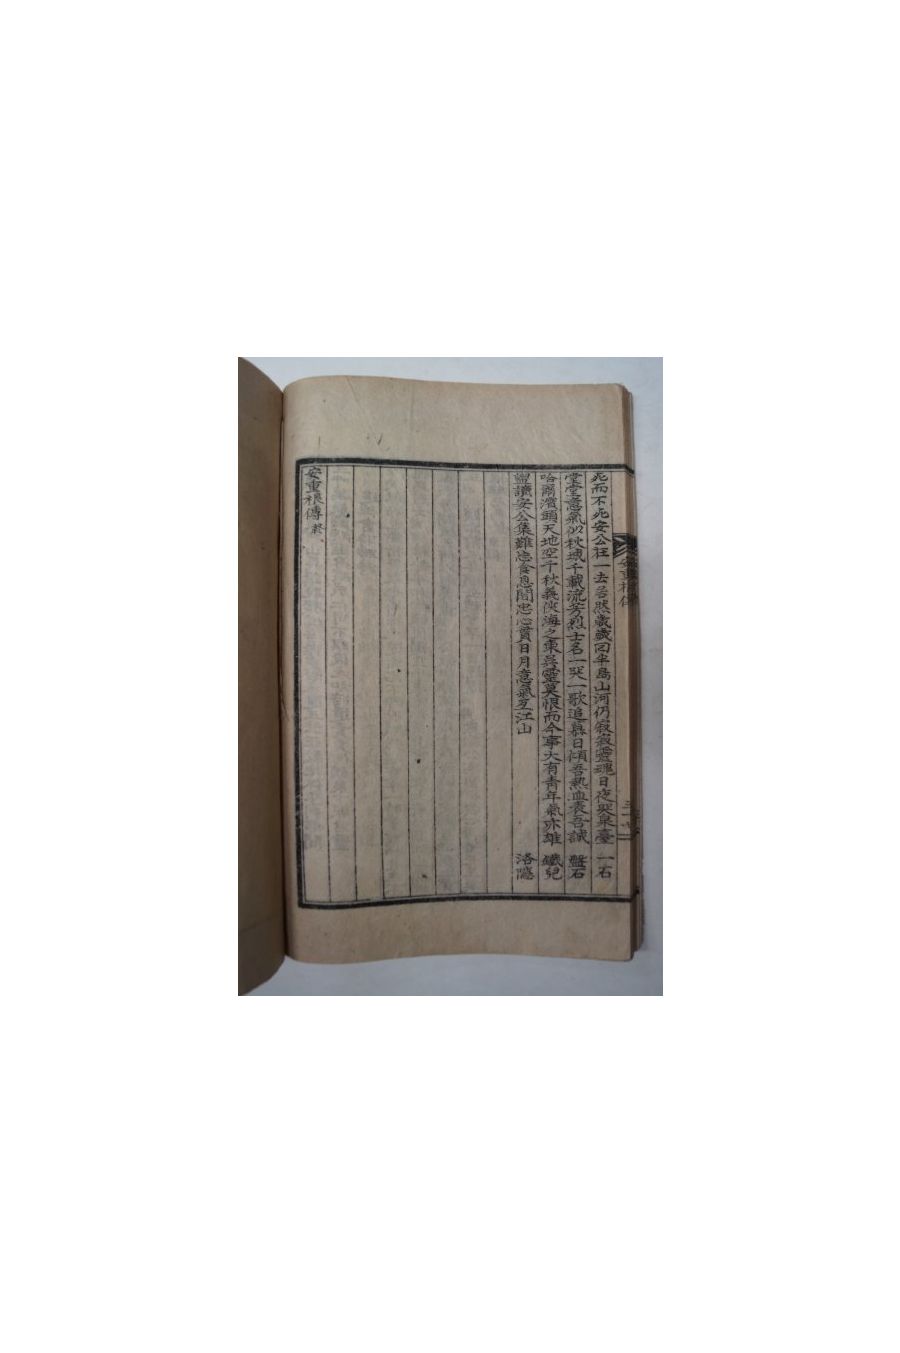 死而不死安公在一去居然歲歲回半島山河仍寂寂靈魂日夜哭泉臺 一石
堂堂意氣似秋城千載流芳烈士名一哭一歌追慕日傾吾熱血表吾誠 盤石
哈爾濱頭天地空千秋義俠海之東英靈莫恨而今事大有青年氣亦雄 鐵兒
盥讀安公集難忘食息間忠心貫日月意氣亙江山 洛隱
安重根傳 終
安重根傳